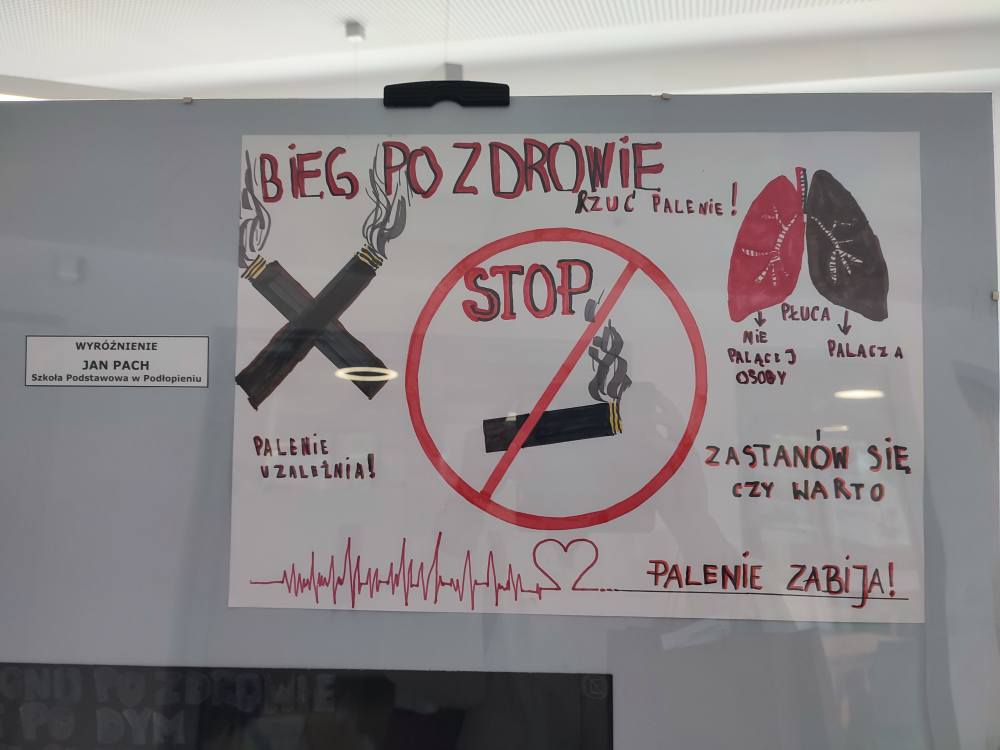 BIEG PO ZDROWIE
RZUĆ PALENIE!
STOP
PŁUCA
NIE
PALĄCEJ
OSOBY
PALACZA
WYRÓŻNIENIE
JAN PACH
Szkoła Podstawowa w Podłopieniu
PALENIE
UZALEŻNIA!
ZASTANÓW SIĘ
CZY WARTO
PALENIE ZABIJA!
PO ZDROWIE
PO DYM